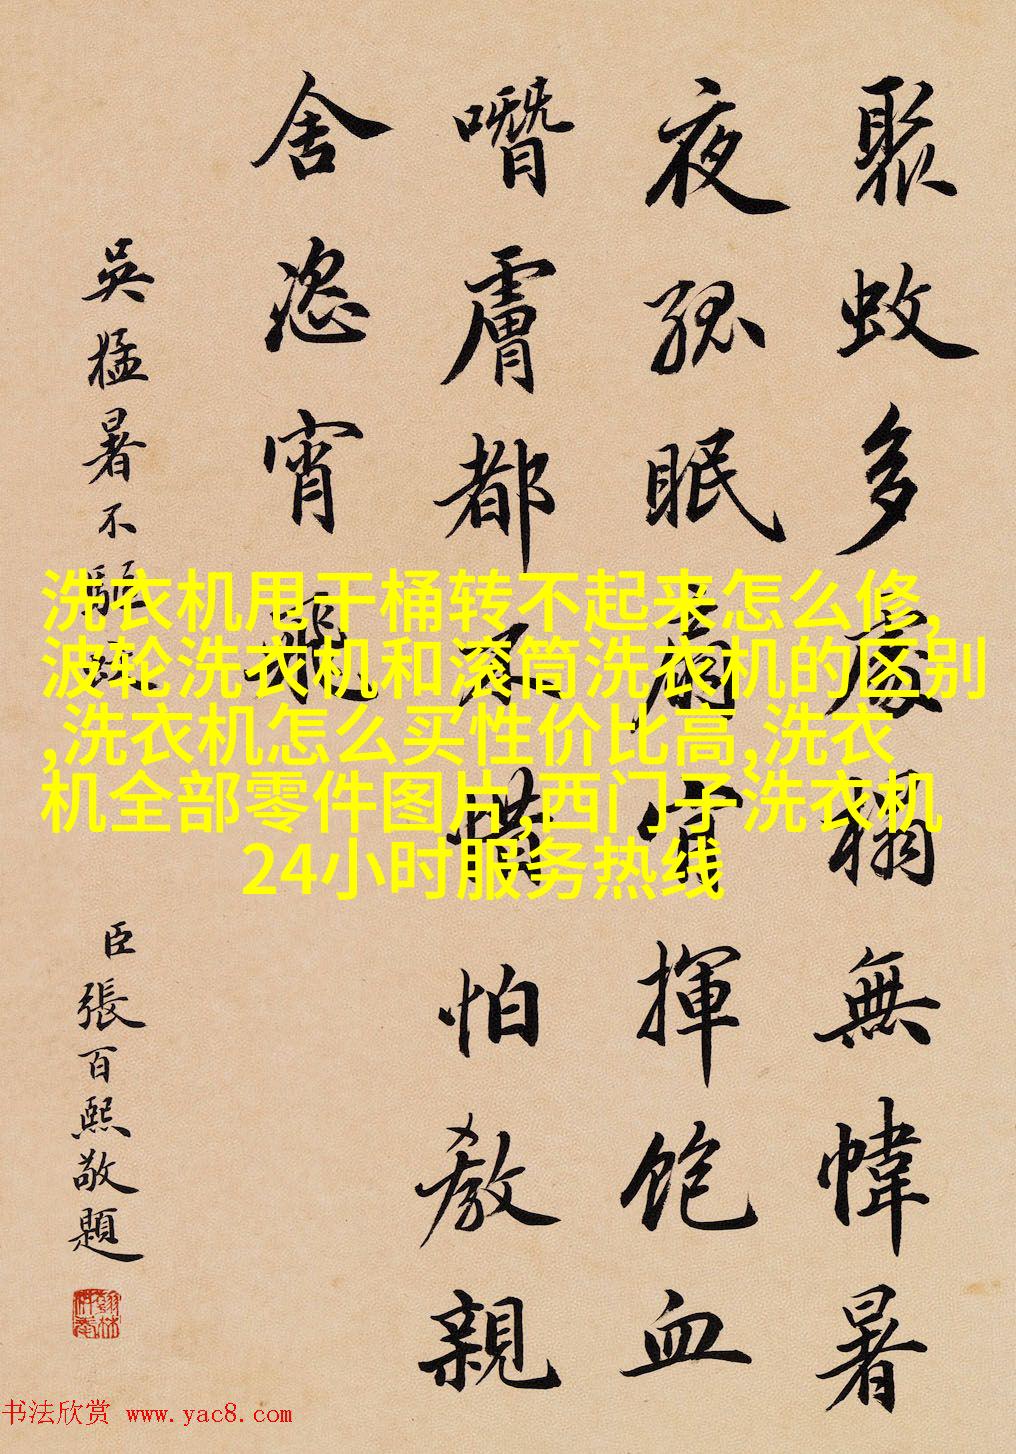 聚蚊多處榻無幃暑
夜孤眠扇揮飽血
噆膚都不惜怕教親
舍恣宵飛
吳猛暑不驅蚊
臣張百熙敬題
洗衣机甩干桶转不起来怎么修,
波轮洗衣机和滚筒洗衣机的区别
,洗衣机怎么买性价比高,洗衣
机全部零件图片,西门子洗衣机
24小时服务热线
书法欣赏 www.yac8.com